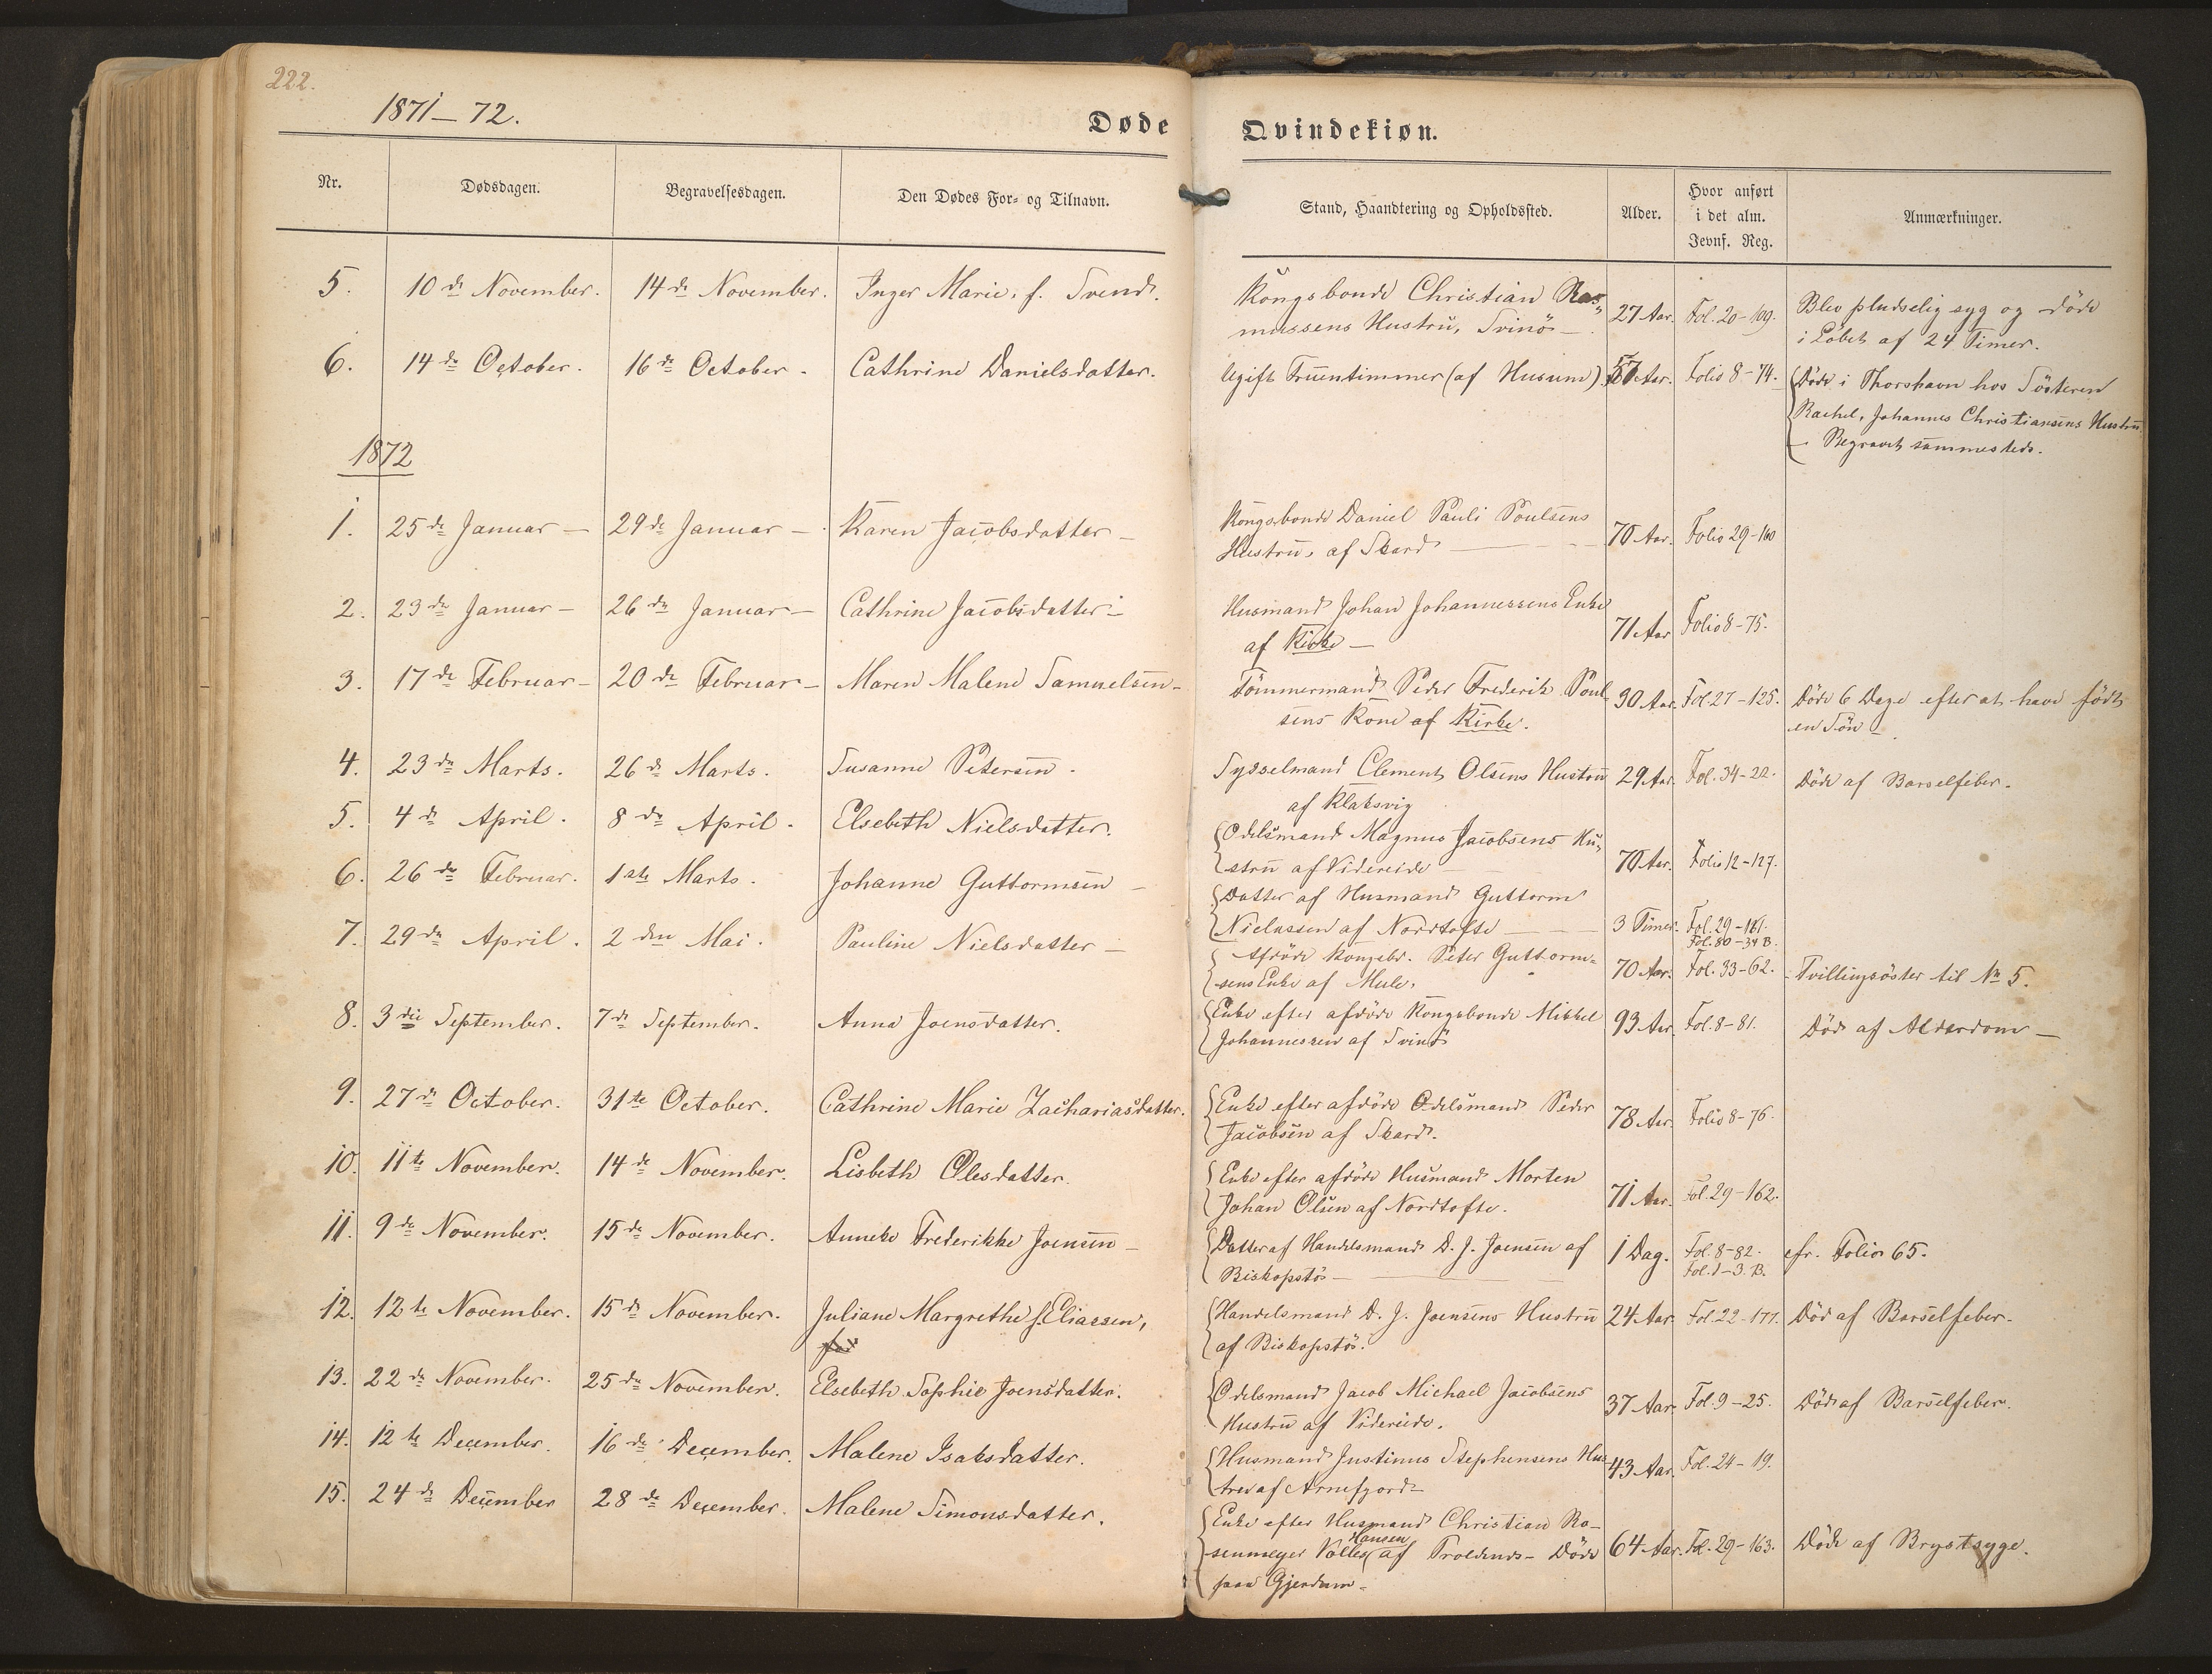 222.
1871–72.
Døde
Qvindekiøn.
Nr.
Dødsdagen.
Begravelsesdagen.
Den Dødes For- og Tilnavn.
Stand, Haandtering og Opholdssted.
Alder.
Hvor anført
i det alm.
Jevnf. Reg.
Anmærkninger.
5. 10de November. 14de November. Inger Marie, f. Svends.
Kongsbonde Christian Ras-
mussens Hustru, Svinö –
27 Aar. Fol. 20–109.
Blev pludselig syg og döde
i Löbet af 24 Timer.
6. 14de October. 16de October. Cathrine Danielsdatter.
Ugift Fruentimmer (af Husum) 57 Aar. Folio 8–74.
Döde i Thorshavn hos Sösteren
Rachel, Johannes Christiansens Hustru
– Begravet sammesteds.
1872
1. 25de Januar – 29de Januar – Karen Jacobsdatter –
Kongsbonde Daniel Pauli Poulsens
Hustru, af Skard –
70 Aar. Folio 29–160
2. 23de Januar – 26de Januar – Cathrine Jacobsdatter –
Husmand Johan Johannessens Enke
af Kirke –
71 Aar Folio 8–75.
3. 17de Februar – 20de Februar – Maren Malene Samuelsen –
Tömmermand Peder Frederik Poul
sens Kone af Kirke.
30 Aar. Fol. 27–125.
Döde 6 Dage efter at have födt
en Sön –
4. 23de Marts. 26de Marts. Susanne Petersen.
Sysselmand Clement Olsens Hustru
af Klaksvig
29 Aar. Fol. 34–22. Döde af Barselfeber.
5. 4de April. 8de April. Elsebeth Nielsdatter.
Odelsmand Magnus Jacobsens Hu-
stru af Videreide –
70 Aar. Folio 12–127.
6. 26de Februar. 1ste Marts. Johanne Guttormsen –
Datter af Husmand Guttorm
Nielassen af Nordtofte –
3 Timer. Fol. 29–161.
Fol. 80–34 B.
7. 29de April. 2den Mai. Pauline Nielsdatter –
Afdöde Kongsb. Peter Guttorm-
sens Enke af Mule.
70 Aar. Fol. 33–62. Tvillingsöster til No 5.
8. 3die September. 7de September. Anna Joensdatter.
Enke efter afdöde Kongsbonde Mikkel
Johannessen af Svinö
93 Aar. Fol. 8–81. Död af Alderdom –
9. 27de October. 31te October. Cathrine Marie Zachariasdatter.
Enke efter afdöde Odelsmand Peder
Jacobsen af Skard.
78 Aar. Folio 8–76.
10. 11te November. 14de November. Lisbeth Olesdatter.
Enke efter afdöde Husmand Morten
Johan Olsen af Nordtofte.
71 Aar. Fol. 29–162.
11. 9de November. 15de November. Anneke Frederikke Joensen –
Datter af Handelsmand D. J. Joensen af
Biskopstö –
1 Dag. Fol. 8–82.
Fol. 1–3. B.
cfr. Folio 65.
12. 12te November. 15de November. Juliane Margrethe f. Eliassen,
Handelsmand D. J. Joensens Hustru
af Biskopstö.
24 Aar. Fol. 22–177. Död af Barselfeber.
13. 22de November. 25de November. Elsebeth Sophie Joensdatter.
Odelsmand Jacob Michael Jacobsens
Hustru af Videreide.
37 Aar. Fol. 9–25. Död af Barselfeber.
14. 12te December. 16de December. Malene Isaksdatter.
Husmand Justinus Stephensens Hus-
tru af Arnefjord –
43 Aar. Fol. 24–19.
15. 24de December 28de December. Malene Simonsdatter.
Enke efter Husmand Christian Ro-
senmeyer Hansen af Troldenæs – Döde
paa Gjerdum –
64 Aar. Fol. 29–163. Döde af Brystsyge.